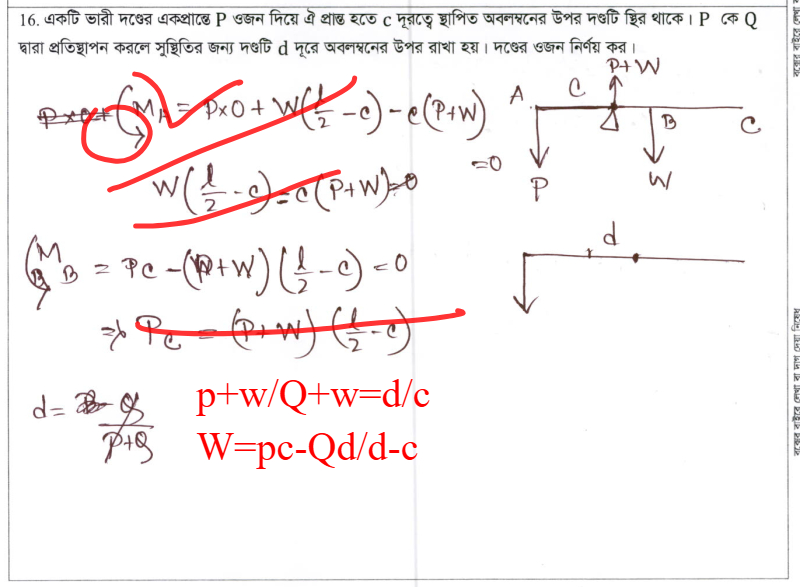 16. একটি ভারী দণ্ডের একপ্রান্তে P ওজন দিয়ে ঐ প্রান্ত হতে c দূরত্বে স্থাপিত অবলম্বনের উপর দণ্ডটি স্থির থাকে। P কে Q
দ্বারা প্রতিস্থাপন করলে সুস্থিতির জন্য দণ্ডটি d দূরে অবলম্বনের উপর রাখা হয়। দণ্ডের ওজন নির্ণয় কর।
P+W
A C
B C
P W
M_A = P×0 + W(l/2 - c) - c(P+W)
=0
W(l/2 - c) = c(P+W)=0
M_B = Pc - (P+W)(l/2 - c) = 0
d
⇒ Pc = (P+W)(l/2 - c)
p+w/Q+w=d/c
W=pc-Qd/d-c